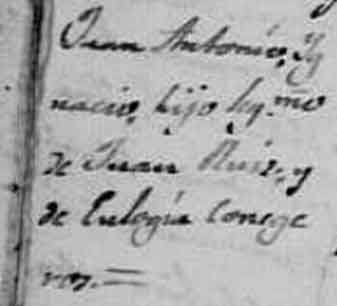 Juan Antonio, Ig
nacio, hijo lig.mo
de Juan Ruiz, y
de Eulogia Conege
ros.=